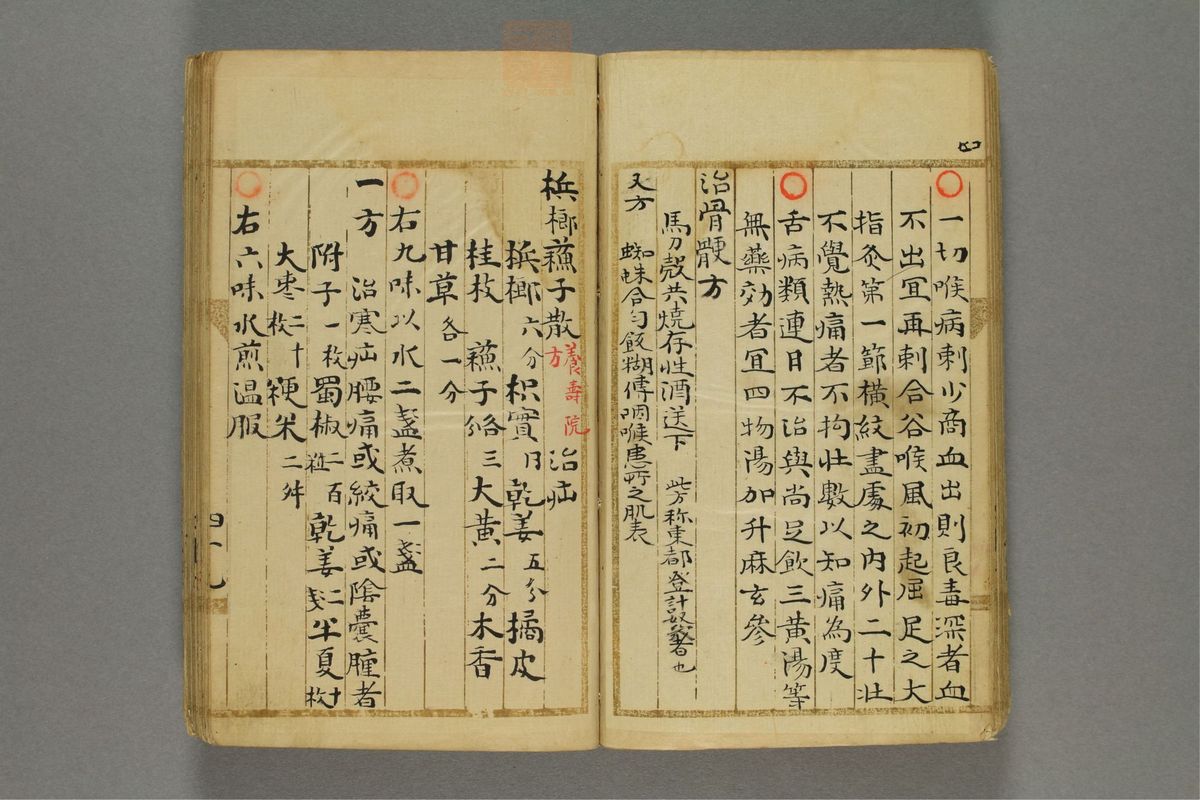 一切喉病刺少商血出則良毒深者血
不出冝再刺合谷喉風初起屈足之大
指灸第一節横紋盡處之内外二十壮
不覺熱痛者不拘壮數以知痛為度
舌病類連日不治與尚足飲三黄湯等
無藥効者冝四物湯加升麻玄參
治骨骾方
馬刀殼共燒存性酒送下 此方称東都
又方 蜘蛛合匀飯糊傅咽喉患所之肌表
梹榔蘓子散 養壽院方 治疝
梹榔六分 枳實 乾姜五分 橘皮
桂枝 蘓子各三 大黄二分 木香
甘草各一分
右九味以水二盞煮取一盞
一方 治寒疝腰痛或絞痛或陰嚢腫者
附子一枚 蜀椒二百粒 乾姜二戔 半夏十枚
大枣二十枚 粳米二舛
右六味水煎温服
四十九